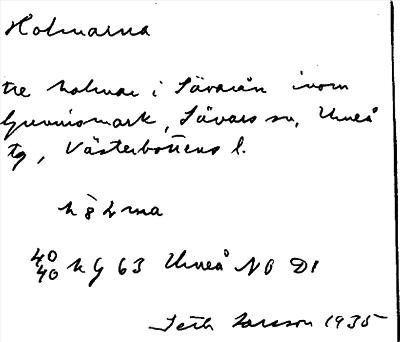 Holmarna
tre holmar i Sävarån inom
Gunnismark, Sävars sn, Umeå
tg, Västerbottens l.
hòlma
40 40 kg 63 Umeå NO D1
Seth Larsson 1935